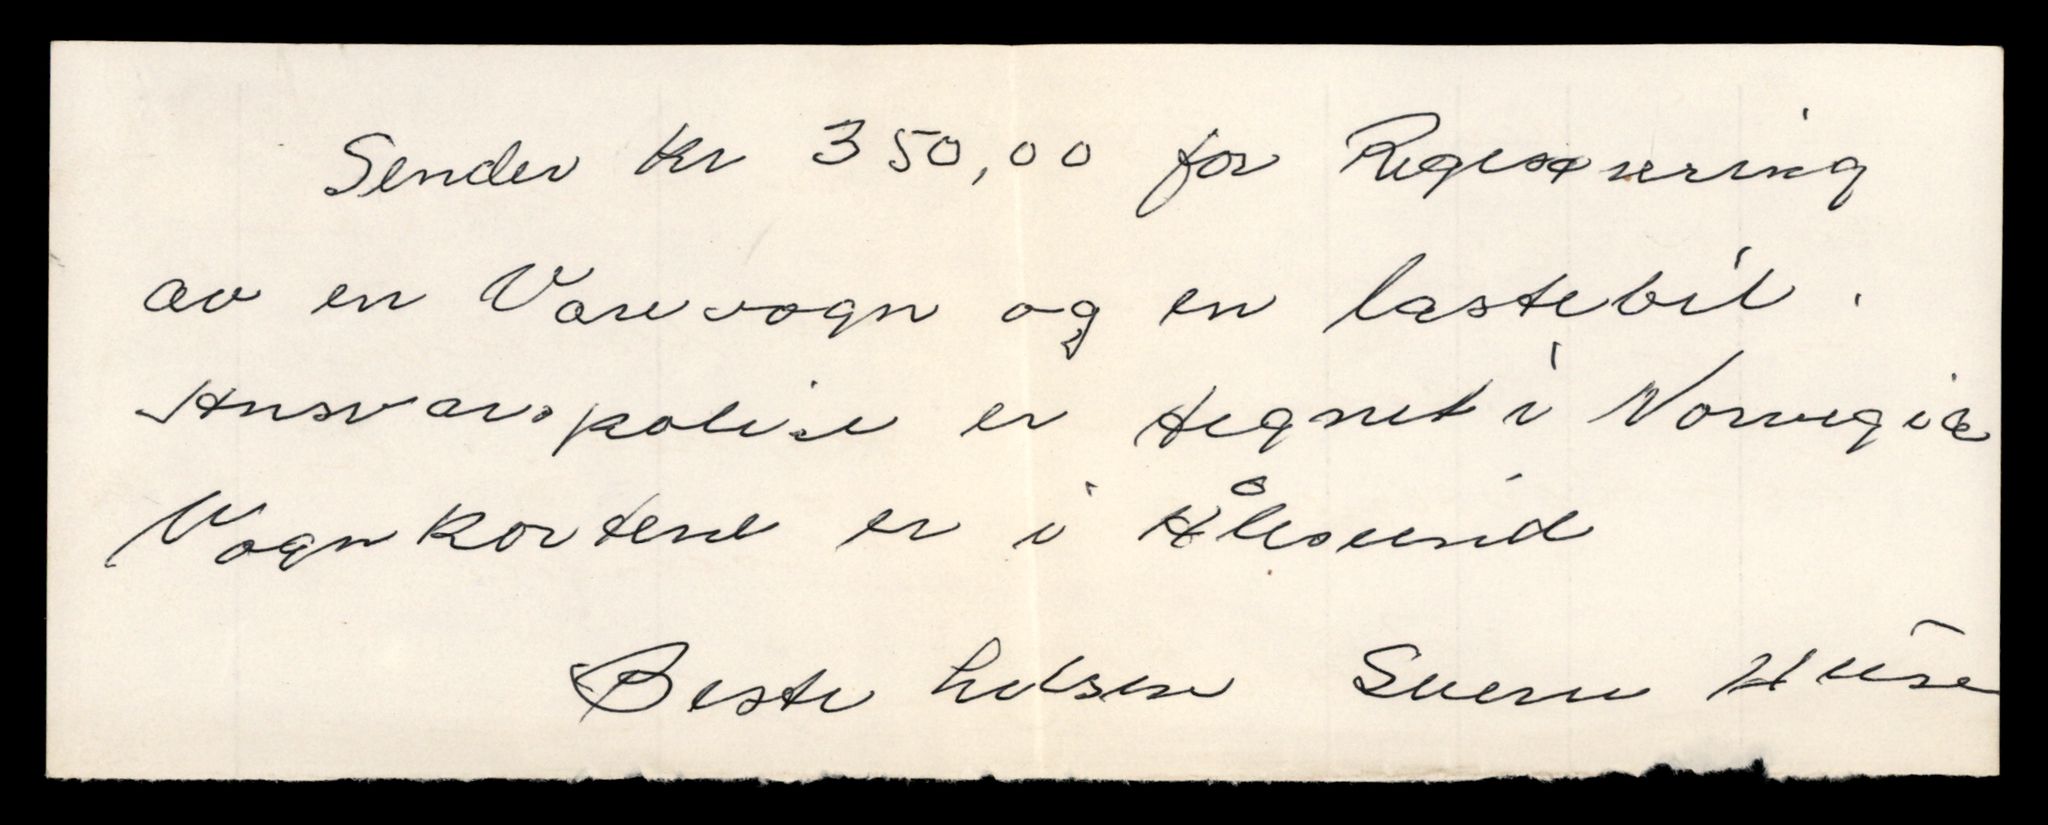 Sender kr 350,00 for Registrering
av en Varevogn og en lastebil.
Ansvarspolise er tegnet i Norvegia
Vognkortene er i Ålesund
Beste hilsen Sverre Huse